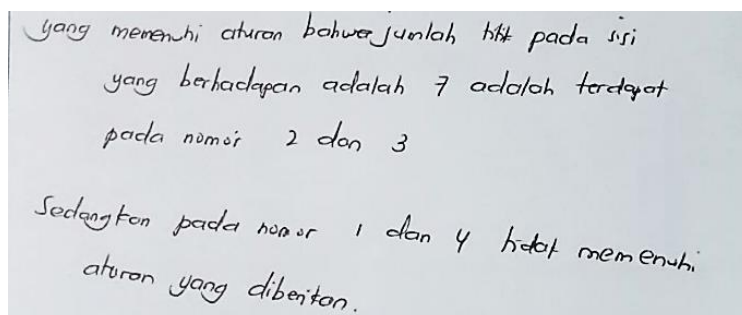 yang memenuhi aturan bahwa jumlah titik pada sisi
yang berhadapan adalah 7 adalah terdapat
pada nomor 2 dan 3
Sedangkan pada nomor 1 dan 4 tidak memenuhi
aturan yang diberikan.